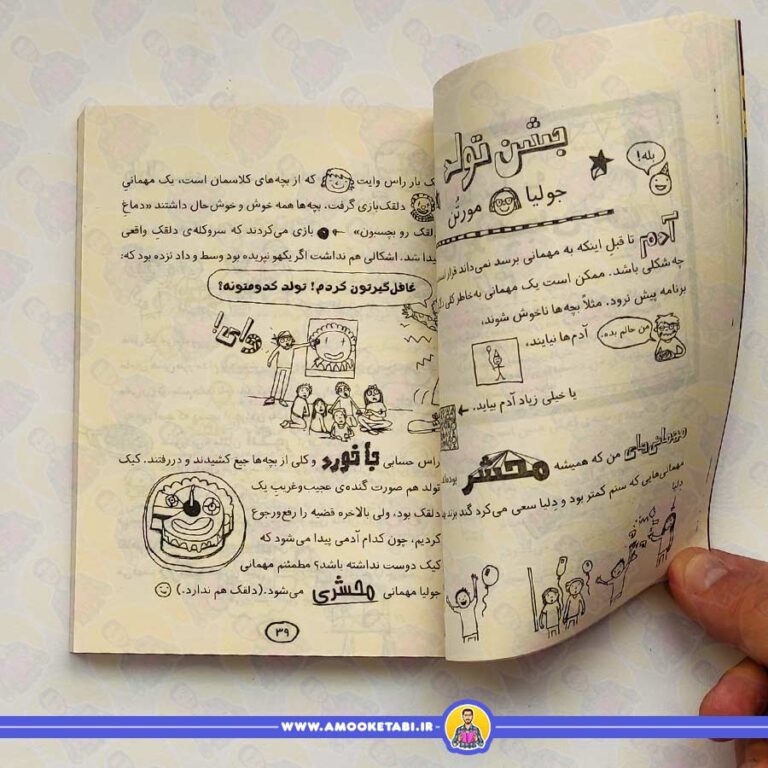 جشن تولد
بله!
جولیا مورتُن
آدم تا قبل اینکه به مهمانی برسد نمی‌داند قرار است
چه‌شکلی باشد. ممکن است یک مهمانی به‌خاطر کلی
برنامه پیش نرود. مثلاً بچه‌ها ناخوش شوند،
من حالم بده.
آدم‌ها نیایند،
یا خیلی زیاد آدم بیاید.
مهمانی‌های من که همیشه محشر بوده‌اند
مهمانی‌هایی که سنم کمتر بود و دِلیا سعی می‌کرد گند بزند
دِلیا
یک بار راس وایت که از بچه‌های کلاسمان است، یک مهمانیِ
دلقک‌بازی گرفت. بچه‌ها همه خوش و خوش‌حال داشتند «دماغ
دلقک رو بچسبون» بازی می‌کردند که سروکله‌ی دلقک واقعی
پیدا شد. اشکالی هم نداشت اگر یکهو نپریده بود وسط و داد نزده بود که:
غافل‌گیرتون کردم! تولد کدومتونه؟
وای!
راس حسابی جا خورد و کلی از بچه‌ها جیغ کشیدند و دررفتند. کیک
تولد هم صورت گنده‌ی عجیب‌وغریبِ یک
دلقک بود، ولی بالاخره قضیه را رفع‌ورجوع
کردیم، چون کدام آدمی پیدا می‌شود که
کیک دوست نداشته باشد؟ مطمئنم مهمانی
جولیا مهمانی محشری می‌شود. (دلقک هم ندارد.)
۳۹
WWW.AMOOKETABI.IR